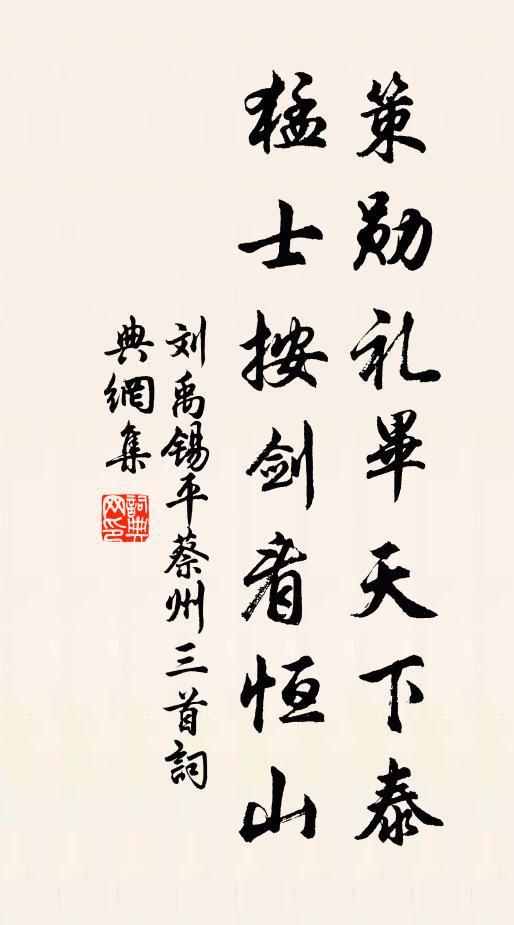 策勋礼畢天下泰
猛士按剑看恒山
刘禹锡平蔡州三首詞
典網集
詞典网印